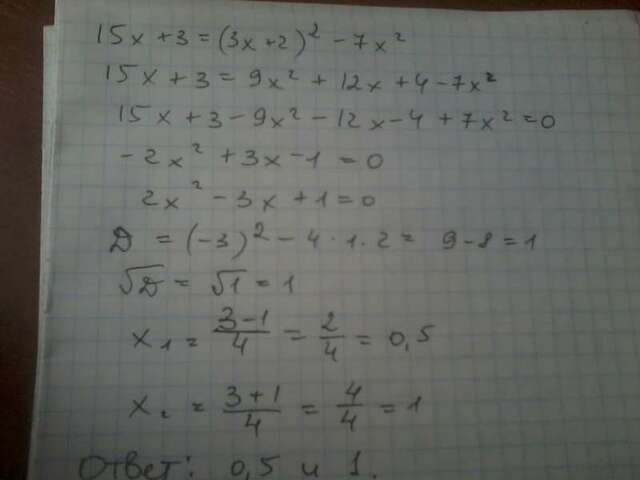 15x + 3 = (3x+2)² - 7x²
15x + 3 = 9x² + 12x + 4 - 7x²
15x + 3 - 9x² - 12x - 4 + 7x² = 0
-2x² + 3x - 1 = 0
2x² - 3x + 1 = 0
D = (-3)² - 4·1·2 = 9 - 8 = 1
√D = √1 = 1
x₁ = (3-1)/4 = 2/4 = 0,5
x₂ = (3+1)/4 = 4/4 = 1
Ответ: 0,5 и 1.